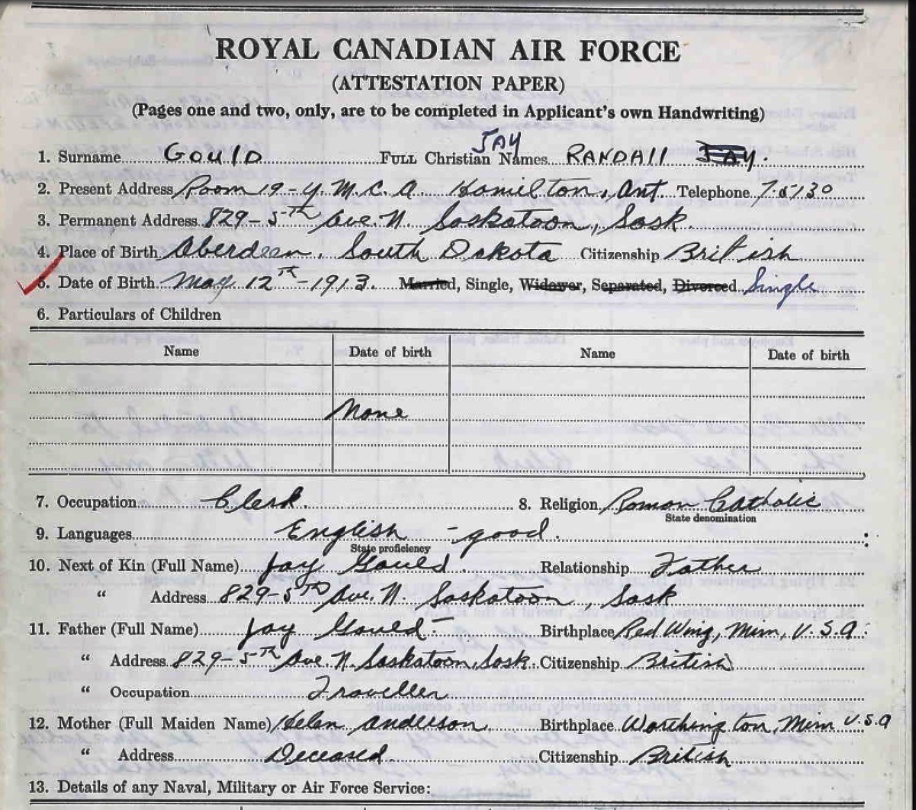 ROYAL CANADIAN AIR FORCE
(ATTESTATION PAPER)
(Pages one and two, only, are to be completed in Applicant's own Handwriting)
JAY
1. Surname GOULD FULL Christian Names RANDALL JAY.
2. Present Address Room 19 - Y.M.C.A. Hamilton, Ont Telephone 7-5130
3. Permanent Address 829-5TH Ave. N. Saskatoon, Sask.
4. Place of Birth Aberdeen, South Dakota Citizenship British
5. Date of Birth May 12TH - 1913. Married, Single, Widower, Separated, Divorced Single
6. Particulars of Children
Name Date of birth Name Date of birth
None
7. Occupation Clerk. 8. Religion Roman Catholic
State denomination
9. Languages English - good.
State proficiency
10. Next of Kin (Full Name) Jay Gould. Relationship Father
" Address 829-5TH Ave. N. Saskatoon, Sask
11. Father (Full Name) Jay Gould Birthplace Red Wing, Minn, U.S.A.
" Address 829-5TH Ave N. Saskatoon, Sask. Citizenship British
" Occupation Traveller
12. Mother (Full Maiden Name) Helen Anderson Birthplace Worthington, Minn U.S.A
" Address Deceased Citizenship British
13. Details of any Naval, Military or Air Force Service: